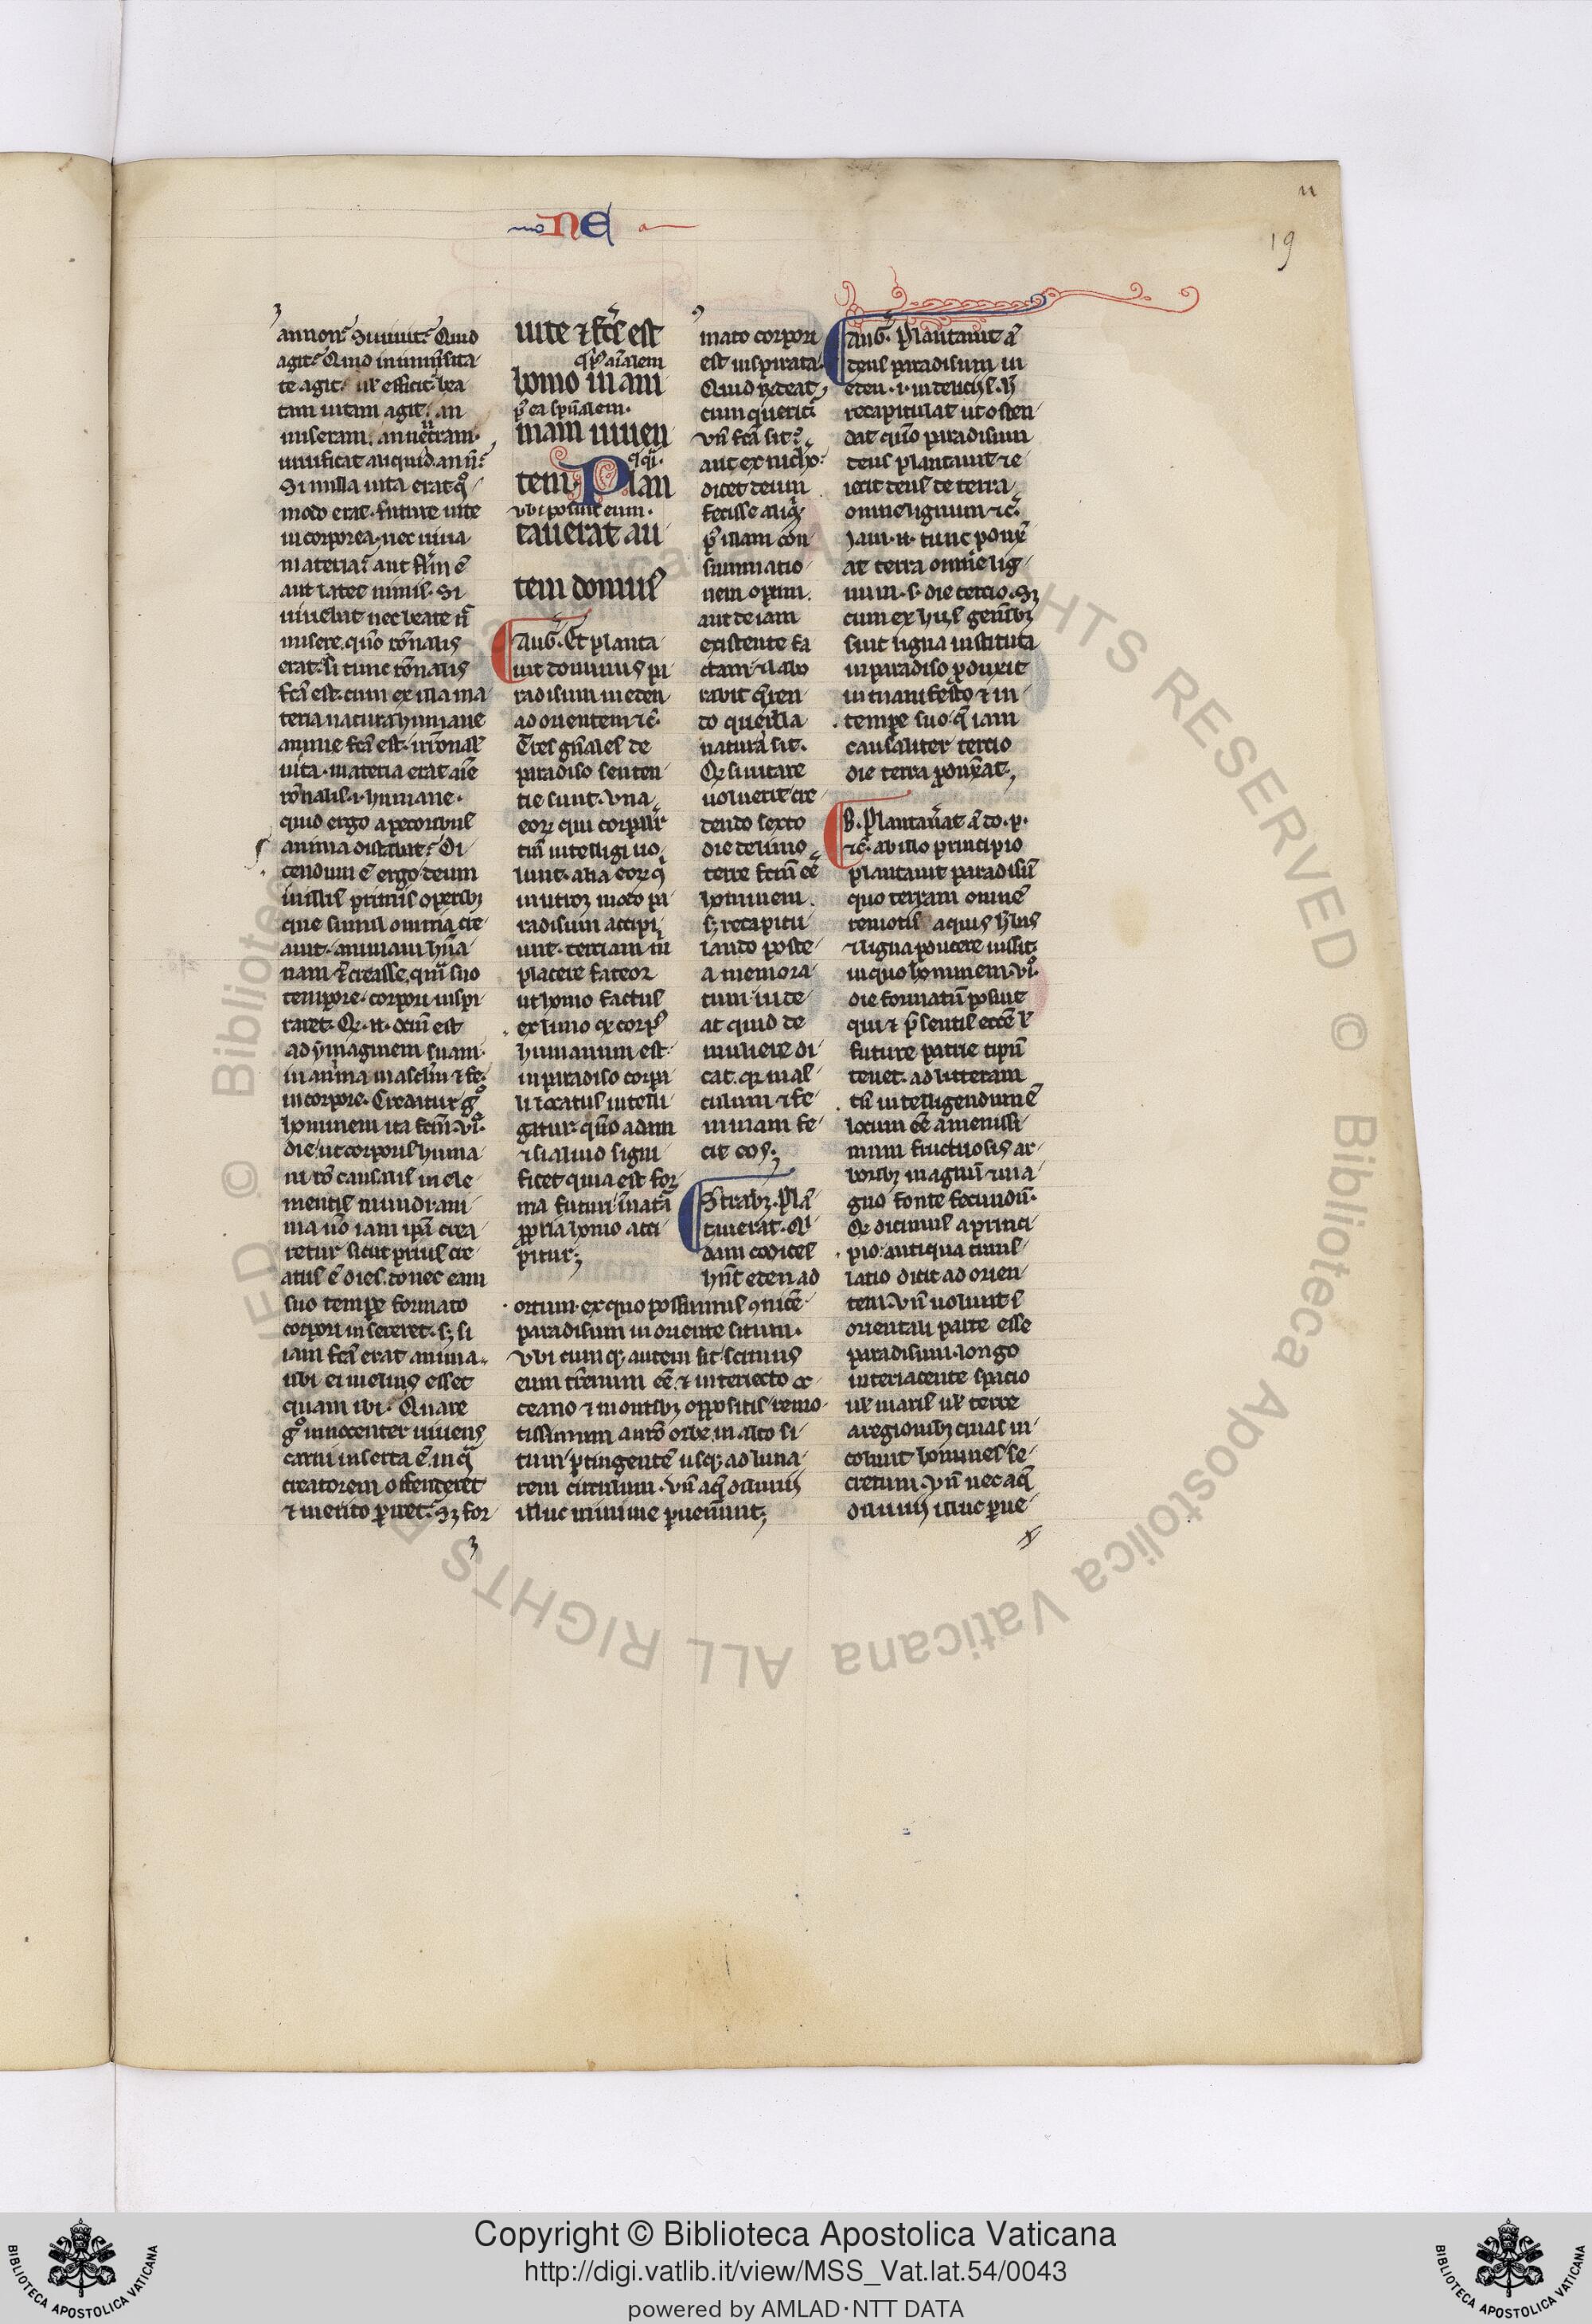 NE
19
an non. Si uiuit. Quid
agit. Quid in uniuersita
te agit. uel efficit. bea
tam uitam agit. an
miseram. an neutram.
uiuificat aliquid. an n.
Si nulla uita erat quo
modo erat. future uite
incorporea. nec uiua
materia. aut
aut latet nimis. Si
uiuebat nec beate nec
misere. quo ronalis
erat. si tunc ronalis
fca est. cum ex illa ma
teria natura humane
anime fca est. irronal
uita. materia erat aie
ronalis. i. humane.
quid ergo a pecoribus
anima distabat. Di
cendum e ergo deum
in illis primis operibz
que simul omnia cre
auit. animam hua
nam creasse. quam suo
tempore corpori inspi
raret. Qz. n. dcm est
ad ymaginem suam.
in anima masclm & fe.
in corpore. Creditur go
hominem ita fcm. vio
die. ut corporis huma
ni ro causalis in ele
mentis mundi. ani
ma uo iam ipa crea
retur sicut prius cre
atus e dies. donec eam
suo tempe formato
corpori insereret. sz si
iam fca erat anima.
ubi ei melius esset
quam ibi. Quare
go innocenter uiuens
carni inserta e. in qua
creatorem offenderet
& merito piret. Sz for
uite & fcs est
homo in ani
mam uiuen
tem. Plan
vbi posuit eum.
tauerat au
tem domus
Aug. Et planta
uit dominus pa
radisum in eden
ad orientem &c.
Tres gnales de
paradiso senten
tie sunt. vna
eorz qui corpalr
tm intelligi uo
lunt. alia eorz qi
in utroz modo pa
radisum accipi
unt. terciam m
placere fateor
ut homo factus
ex limo qz corps
humanum est.
in paradiso corpa
li locatus intelli
gatur. quo adam
& si aliud signi
ficet quia est for
ma futuri. in natura
propria homo acci
pitur.
mato corpori
est inspirata.
Quid rndeat
cum queritur
vn fca sit.
aut ex nichio.
dicet deum
fecisse aliqz
p illam con
summatio
nem opum.
aut de iam
existente fa
ctam. & labo
rabit quen
do que illa
natura sit.
Qz si uitare
uoluerit cre
dendo sexto
die de limo
terre fcm ee
hominem.
sz recapitu
lando poste
a memora
tum. inde
at quid de
muliere di
cat. qz mas
culum & fe
minam fe
cit eos.
Strabz. Plan
tauerat. Qi
dam codices
hnt eden ad
ortum. ex quo possumus conice
paradisum in oriente situm.
Vbi cumqz autem sit scimus
eum trenum ee. & interiecto oc
ceano & montibz oppositis remo
tissimum a nro orbe. in alto si
tum ptingente usqz ad luna
rem circulum. vn aque diluuii
illuc minime puenerunt.
Aug. Plantauit a
deus paradisum in
eden. i. in delicijs. h
recapitulat ut osten
dat quo paradisum
deus plantauit & e
iecit deus de terra
omne lignum &c.
Iam. n. tunc ponx
at terra omne lig
num. s. die tercio. Sz
cum ex hijs genibz
sint ligna instituta
in paradiso ponxit
in manifesto & in
tempe suo. q iam
causaliter tercio
die terra ponxat.
B. Plantauat a do. p.
&c. ab illo principio
plantauit paradisu
quo terram omne
remotis aquis hbis
& ligna poducere iussit.
in quo hominem. vio.
die formatu posuit
qui & psentis ecce &
future patrie tipu
tenet. ad litteram
tn intelligendum e
locum ee amenissi
mum fructuosis ar
boribz magnu & ma
gno fonte fecundu.
Qz dicimus a princi
pio. antiqua trans
latio dicit ad orien
tem. vn uolunt
orientali parte esse
paradisum. longo
interiacente spacio
uel maris uel terre
a regionibz quas in
colunt homines se
cretum. vn nec aque
diluuii illuc pue
Copyright © Biblioteca Apostolica Vaticana
http://digi.vatlib.it/view/MSS_Vat.lat.54/0043
powered by AMLAD·NTT DATA
BIBLIOTECA APOSTOLICA VATICANA
BIBLIOTECA APOSTOLICA VATICANA
© Biblioteca Apostolica Vaticana ALL RIGHTS RESERVED